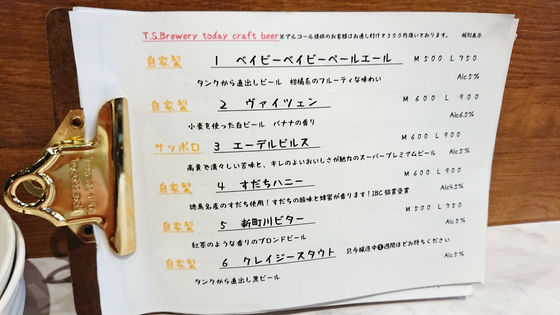 T.S.Brewery today craft beer ※アルコール提供のお客様はお通し付けで300円頂いております。 税別表示
自家製 1 ベイビーベイビーペールエール M 500 L 750
タンクから直出しビール 柑橘系のフルーティな味わい Alc5%
自家製 2 ヴァイツェン M 600 L 900
小麦を使った白ビール バナナの香り Alc6.5%
サッポロ 3 エーデルピルス M 600 L 900
高貴で清々しい苦味と、キレのよいおいしさが魅力のスーパープレミアムビール Alc5%
自家製 4 すだちハニー M 600 L 900
徳島名産のすだち使用!すだちの酸味と蜂蜜が香ります!IBC銘賞受賞 Alc4.5%
自家製 5 新町川ビター M 500 L 750
紅茶のような香りのブロンドビール Alc5%
自家製 6 クレイジースタウト 只今醸造中❶週間ほどお待ちください
タンクから直出し黒ビール Alc5%